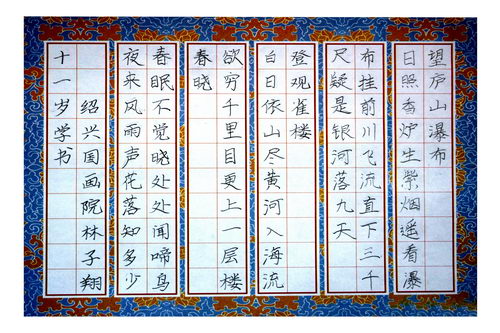 望庐山瀑布
日照香炉生紫烟遥看瀑
布挂前川飞流直下三千
尺疑是银河落九天
登观雀楼
白日依山尽黄河入海流
欲穷千里目更上一层楼
春晓
春眠不觉晓处处闻啼鸟
夜来风雨声花落知多少
绍兴国画院林子翔
十一岁学书